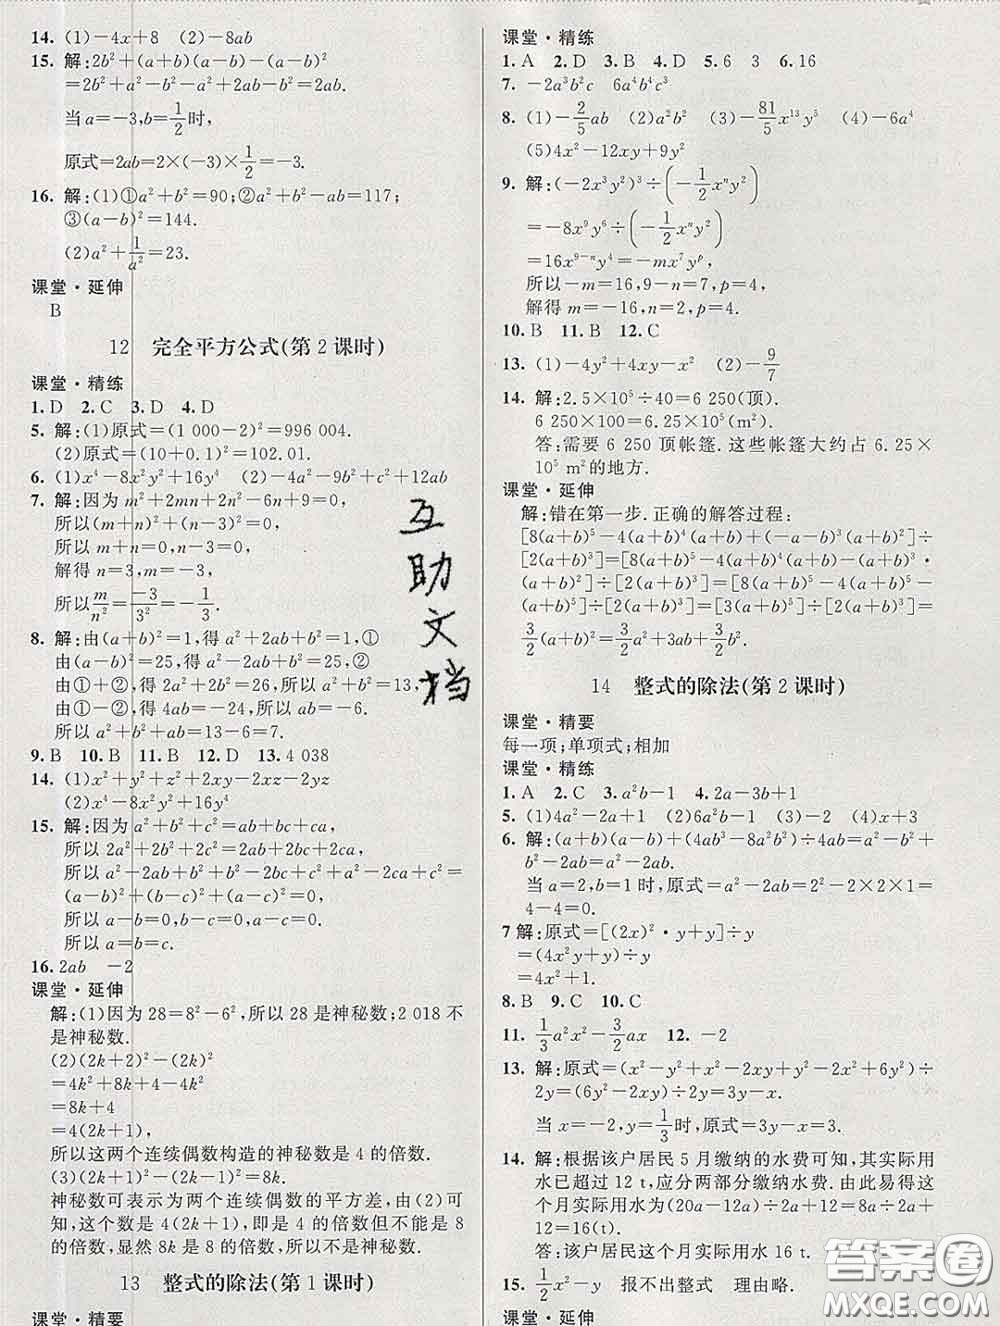 14. (1)－4x＋8　(2)－8ab
15. 解:2b²＋(a＋b)(a－b)－(a－b)²
＝2b²＋a²－b²－a²＋2ab－b²＝2ab.
当 a＝－3,b＝1/2时,
原式＝2ab＝2×(－3)×1/2＝－3.
16. 解:(1)①a²＋b²＝90;②a²－ab＋b²＝117;
③(a－b)²＝144.
(2)a²＋1/a²＝23.
课堂·延伸
B
12　完全平方公式(第 2 课时)
课堂·精练
1. D　2. C　3. D　4. D
5. 解:(1)原式＝(1 000－2)²＝996 004.
(2)原式＝(10＋0.1)²＝102.01.
6. (1)x⁴－8x²y²＋16y⁴　(2)－4a²－9b²＋c²＋12ab
7. 解:因为 m²＋2mn＋2n²－6n＋9＝0,
所以(m＋n)²＋(n－3)²＝0,
所以 m＋n＝0,n－3＝0,
解得 n＝3,m＝－3,
所以m/n²＝－3/3²＝－1/3.
8. 解:由(a＋b)²＝1,得 a²＋2ab＋b²＝1,①
由(a－b)²＝25,得 a²－2ab＋b²＝25,②
由①＋②,得 2a²＋2b²＝26,所以 a²＋b²＝13,
由①－②,得 4ab＝－24,所以 ab＝－6.
所以 a²＋b²＋ab＝13－6＝7.
9. B　10. B　11. B　12. D　13. 4 038
14. (1)x²＋y²＋z²＋2xy－2xz－2yz
(2)x⁴－8x²y²＋16y⁴
15. 解:因为 a²＋b²＋c²＝ab＋bc＋ca,
所以 2a²＋2b²＋2c²＝2ab＋2bc＋2ca,
所以 a²－2ab＋b²＋b²－2bc＋c²＋a²－2ca＋c²＝
(a－b)²＋(b－c)²＋(a－c)²＝0,
所以 a－b＝0,b－c＝0,a－c＝0,
所以 a＝b＝c.
16. 2ab　－2
课堂·延伸
解:(1)因为 28＝8²－6²,所以 28 是神秘数;2 018 不
是神秘数.
(2)(2k＋2)²－(2k)²
＝4k²＋8k＋4－4k²
＝8k＋4
＝4(2k＋1),
所以这两个连续偶数构造的神秘数是 4 的倍数.
(3)(2k＋1)²－(2k－1)²＝8k.
神秘数可表示为两个连续偶数的平方差,由(2)可
知,这个数是 4(2k＋1),即是 4 的倍数但不能是 8
的倍数,显然 8k 是 8 的倍数,所以不是神秘数.
13　整式的除法(第 1 课时)
课堂·精要
课堂·精练
1. A　2. D　3. B　4. D　5. 6　3　6. 16
7. －2a³b²c　6a⁴b⁴c³
8. (1)－2/5ab　(2)a²b²　(3)－81/5x¹³y⁵　(4)－6a⁴
(5)4x²－12xy＋9y²
9. 解:(－2x³y²)³÷(－1/2xⁿy²)
＝－8x⁹y⁶÷(－1/2xⁿy²)
＝16x⁹⁻ⁿy⁴＝－mx⁷yᵖ,
所以－m＝16,9－n＝7,p＝4,
解得 m＝－16,n＝2,p＝4.
10. B　11. B　12. C
13. (1)－4y²＋4xy－x²　(2)－9/7
14. 解:2.5×10⁵÷40＝6 250(顶).
6 250×100＝6.25×10⁵(m²).
答:需要 6 250 顶帐篷.这些帐篷大约占 6.25×
10⁵ m²的地方.
课堂·延伸
解:错在第一步.正确的解答过程:
[8(a＋b)⁵－4(a＋b)⁴(a＋b)＋(－a－b)³(a＋b)²]÷
[2(a＋b)³]＝[8(a＋b)⁵－4(a＋b)⁴(a＋b)－(a＋b)³·
(a＋b)²]÷[2(a＋b)³]＝[8(a＋b)⁵－4(a＋b)⁵－
(a＋b)⁵]÷[2(a＋b)³]＝[3(a＋b)⁵]÷[2(a＋b)³]＝
3/2(a＋b)²＝3/2a²＋3ab＋3/2b².
14　整式的除法(第 2 课时)
课堂·精要
每一项;单项式;相加
课堂·精练
1. A　2. C　3. a²b－1　4. 2a－3b＋1
5. (1)4a²－2a＋1　(2)6a²b－1　(3)－2　(4)x＋3
6. 解:(a＋b)(a－b)＋(4ab³－8a²b²)÷4ab＝a²－b²＋
b²－2ab＝a²－2ab.
当 a＝2,b＝1 时,原式＝a²－2ab＝2²－2×2×1＝
4－4＝0.
7 解:原式＝[(2x)²·y＋y]÷y
＝(4x²y＋y)÷y
＝4x²＋1.
8. B　9. C　10. C
11. 1/3a²x²－3/2ax　12. －2
13. 解:原式＝(x²－y²＋x²－2xy＋y²－2x²＋6y²)÷
2y＝(6y²－2xy)÷2y＝3y－x.
当 x＝－2,y＝1/3时,原式＝3y－x＝3.
14. 解:根据该户居民 5 月缴纳的水费可知,其实际用
水已超过 12 t,应分两部分缴纳水费.由此易得这
个月该户居民实际用水为(20a－12a)÷2a＋
12＝16(t).
答:该户居民这个月实际用水 16 t.
15. 1/2x²－y　报不出整式　理由略.
课堂·延伸
互助文档
答案卷
MXQE.COM